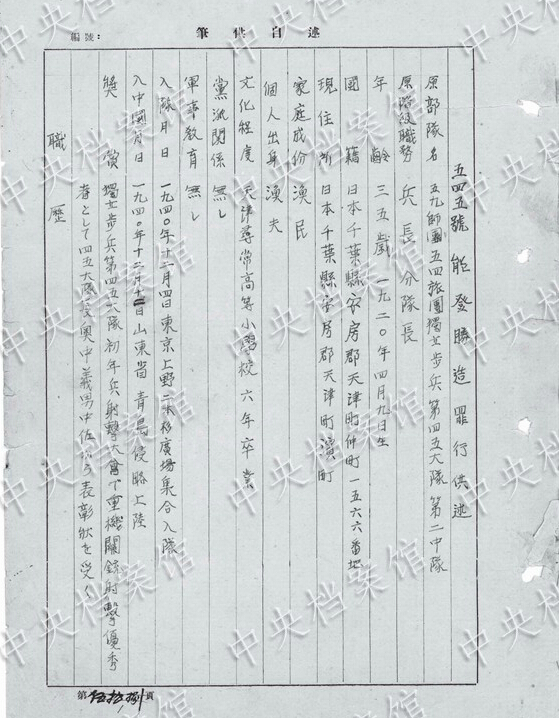 述自供筆
編號：
五四五號 能登勝造 罪行供述
原部隊名 五九師團五四旅團獨立步兵第四五大隊第二中隊
原階級職務 兵長分隊長
年齡 三五歲 一九二〇年四月九日生
國籍 日本千葉縣安房郡天津町仲町一五六六番地
現住所 日本千葉縣安房郡天津町濱町
家庭成份 漁民
個人出身 漁夫
文化程度 天津尋常高等小學校六年卒業
黨派關係 無し
軍事教育 無し
入隊月日 一九四〇年十二月四日東京上野二本杉廣場集合入隊
入中國月日 一九四〇年十二月十二日山東省青島侵略上陸
獎賞 獨立步兵第四五大隊初年兵射擊大會で重機關銃射擊優秀
者として四五大隊長奧中義男中佐から表彰狀を受く
職歷
第伍拾捌頁
中央档案馆